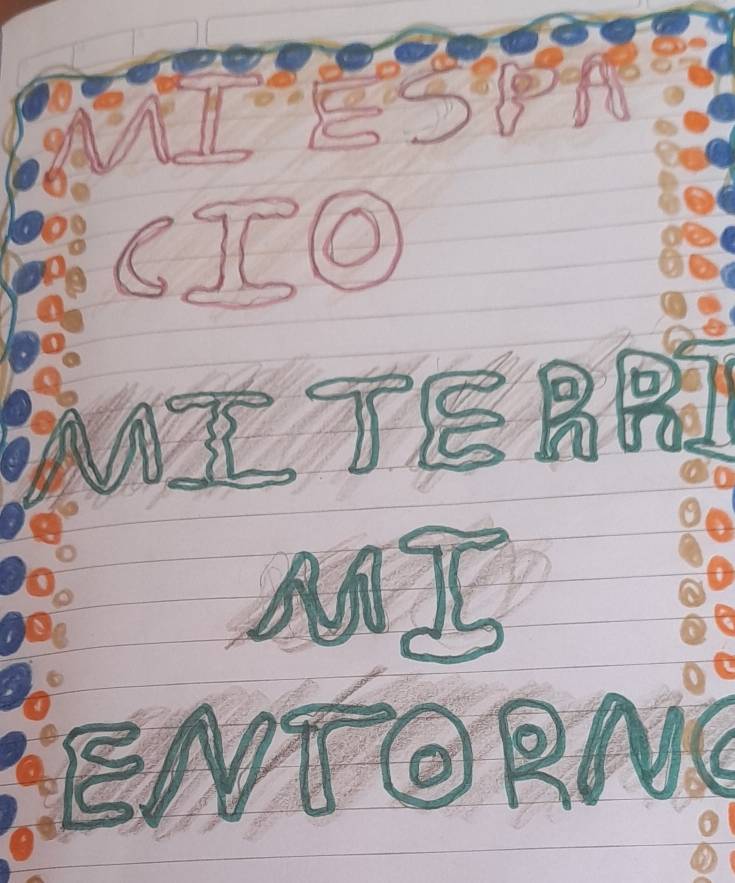 MI ESPA
CIO
MI TERRI
MI
ENTORNO